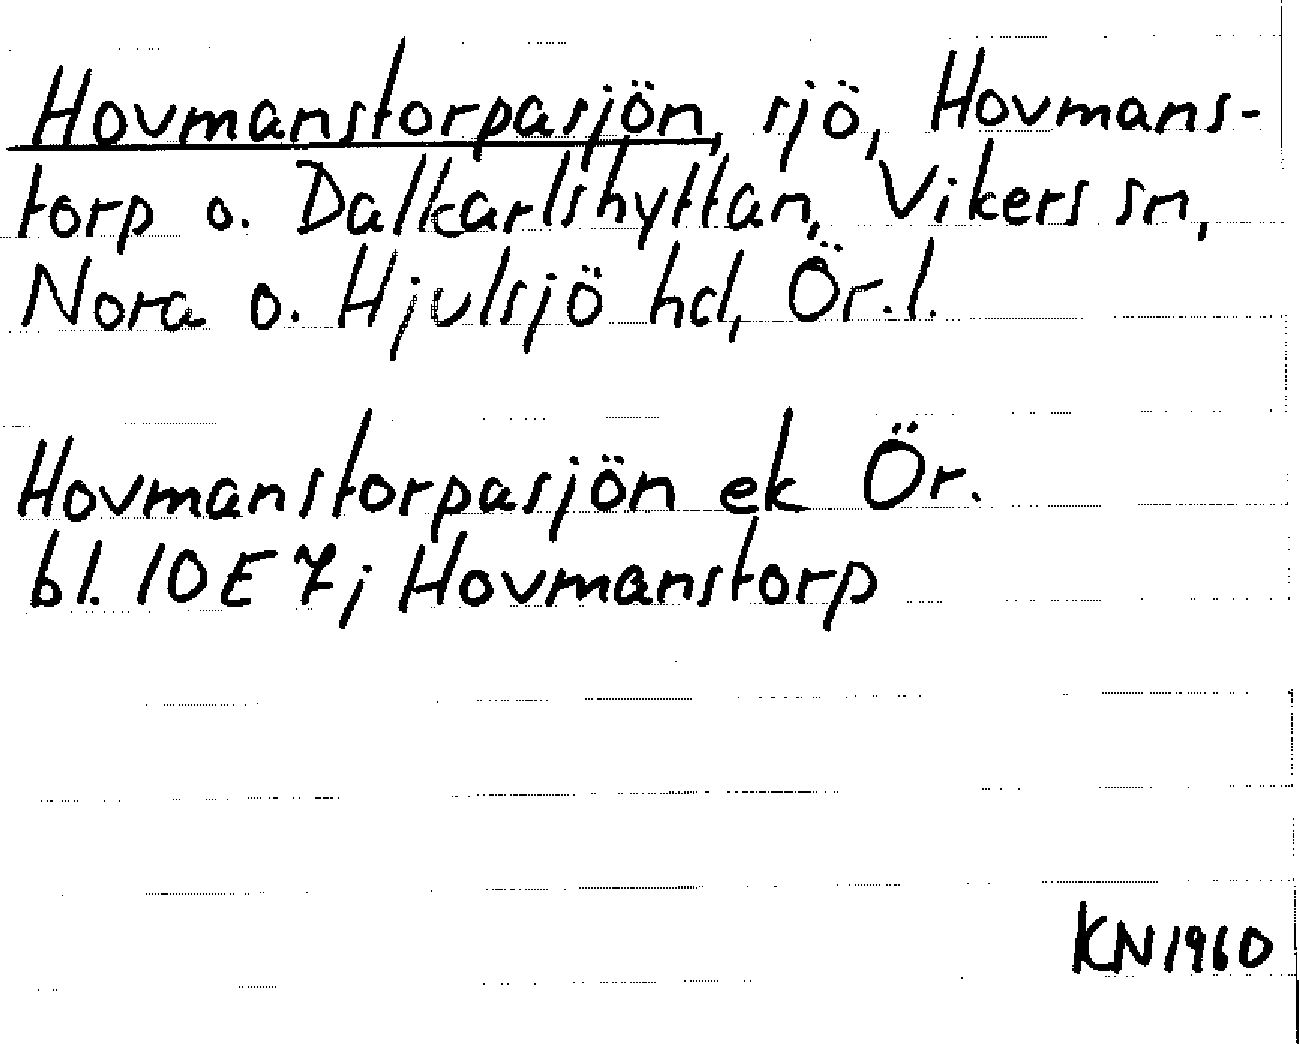 Hovmanstorpasjön, sjö, Hovmans-
torp o. Dalkarlshyttan, Vikers sn,
Nora o. Hjulsjö hd, Ör. l.
Hovmanstorpasjön ek Ör.
bl. 10E7; Hovmanstorp
KN1960